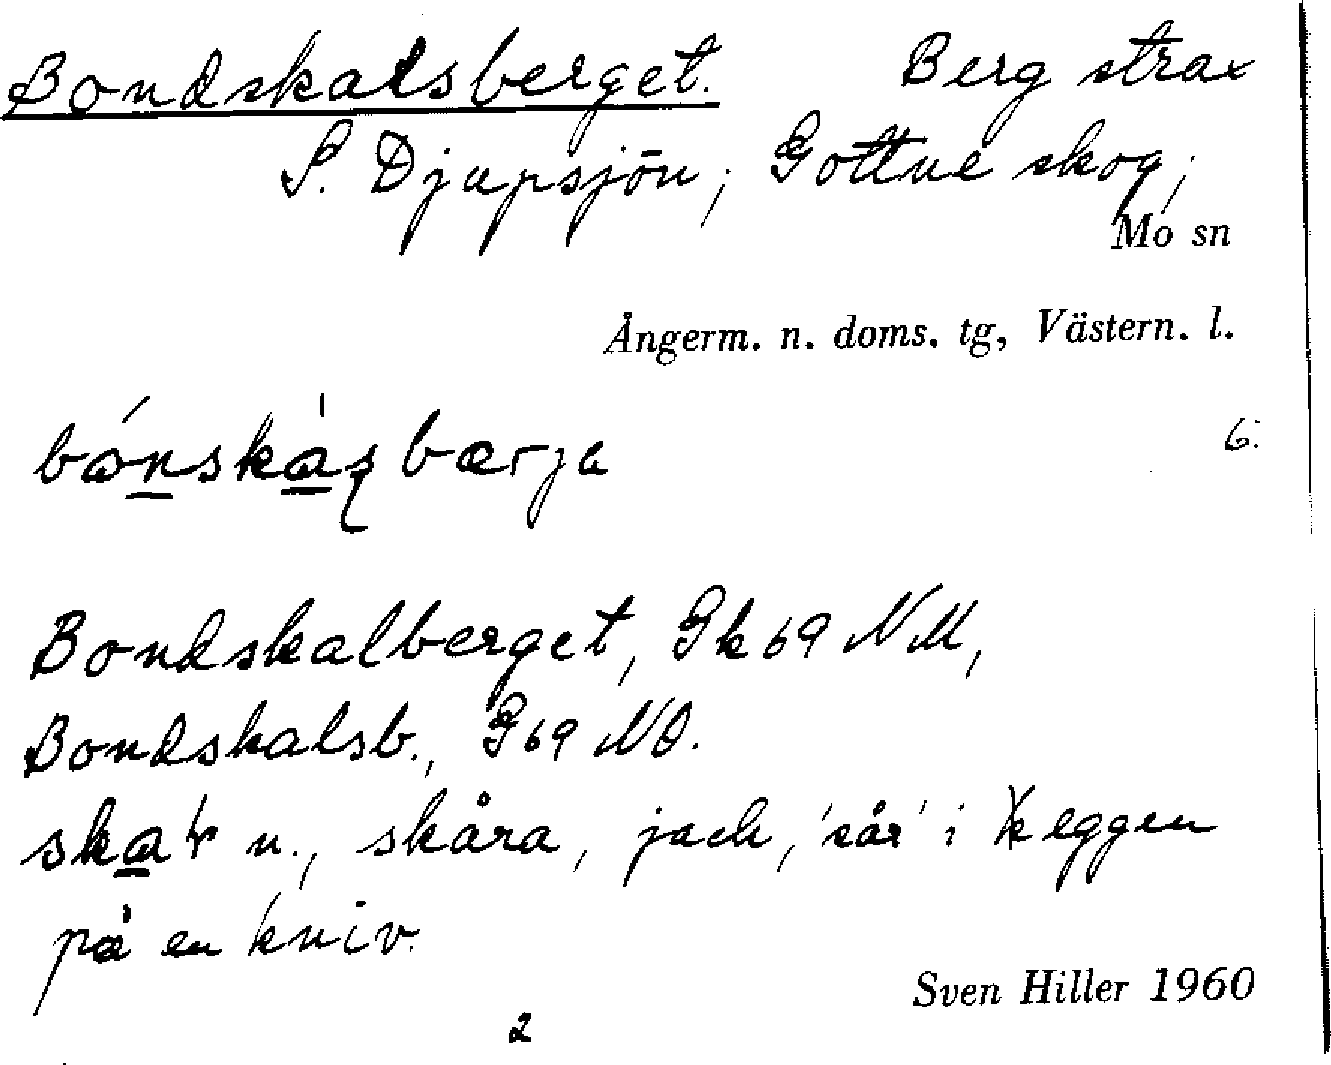 Bondskalsberget. Berg strax
S. Djupsjön; Gottne skog;
Mo sn
Ångerm. n. doms. tg, Västern. l.
6.
Bondskalberget, Gk 69 NM,
Bondskalsb., G 69 NO.
n., skåra, jack, 'sår' i eggen
på en kniv.
Sven Hiller 1960
2